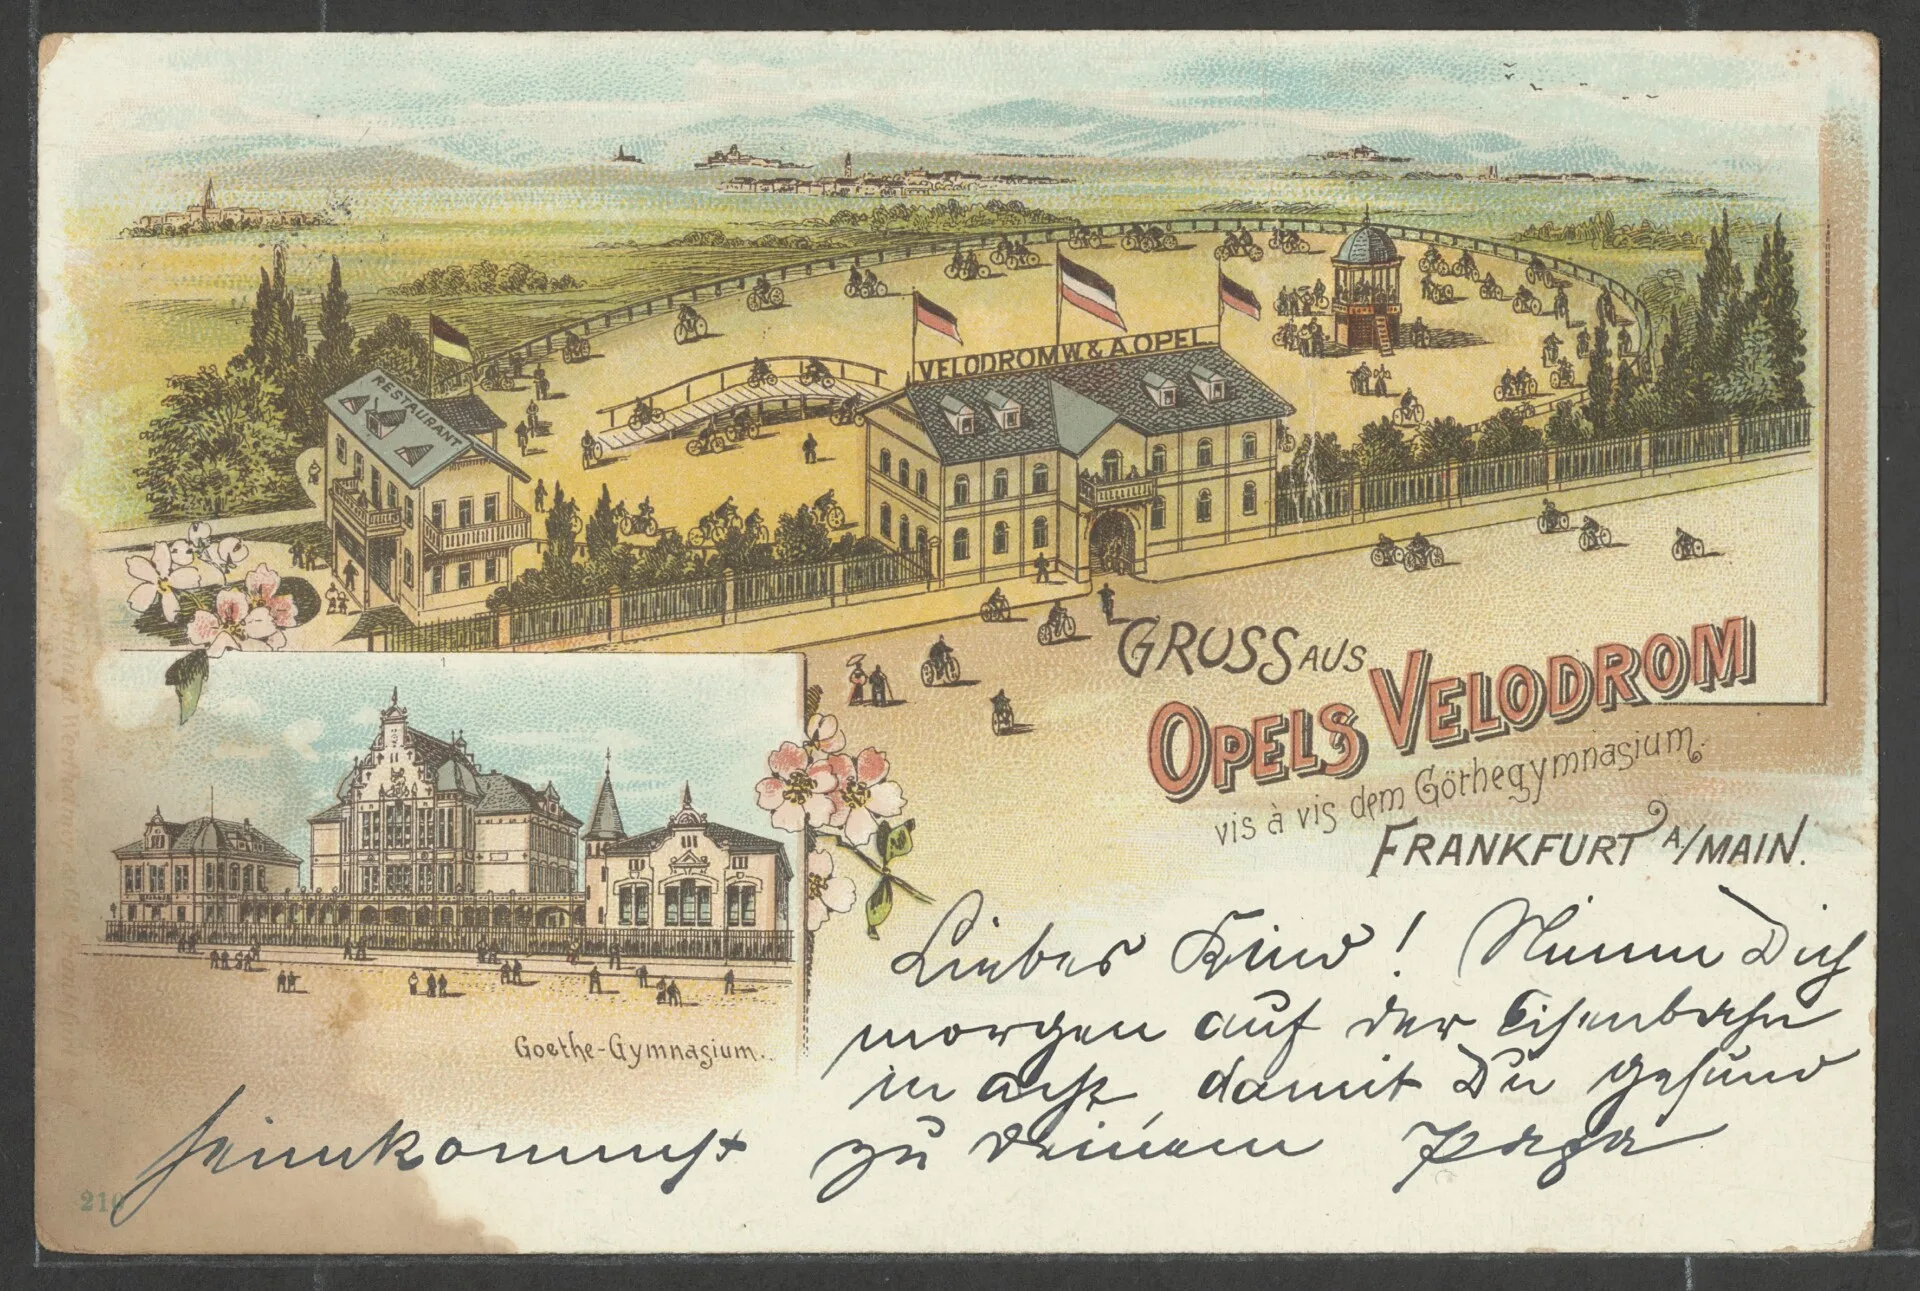 RESTAURANT
VELODROM W. & A. OPEL
GRUSS AUS
OPELS VELODROM
vis à vis dem Göthegymnasium.
FRANKFURT A/MAIN.
Goethe-Gymnasium.
Liebes Kind! Nimm Dich
morgen auf der Eisenbahn
in acht, damit Du gesund
heimkommst zu Deinem Papa
210